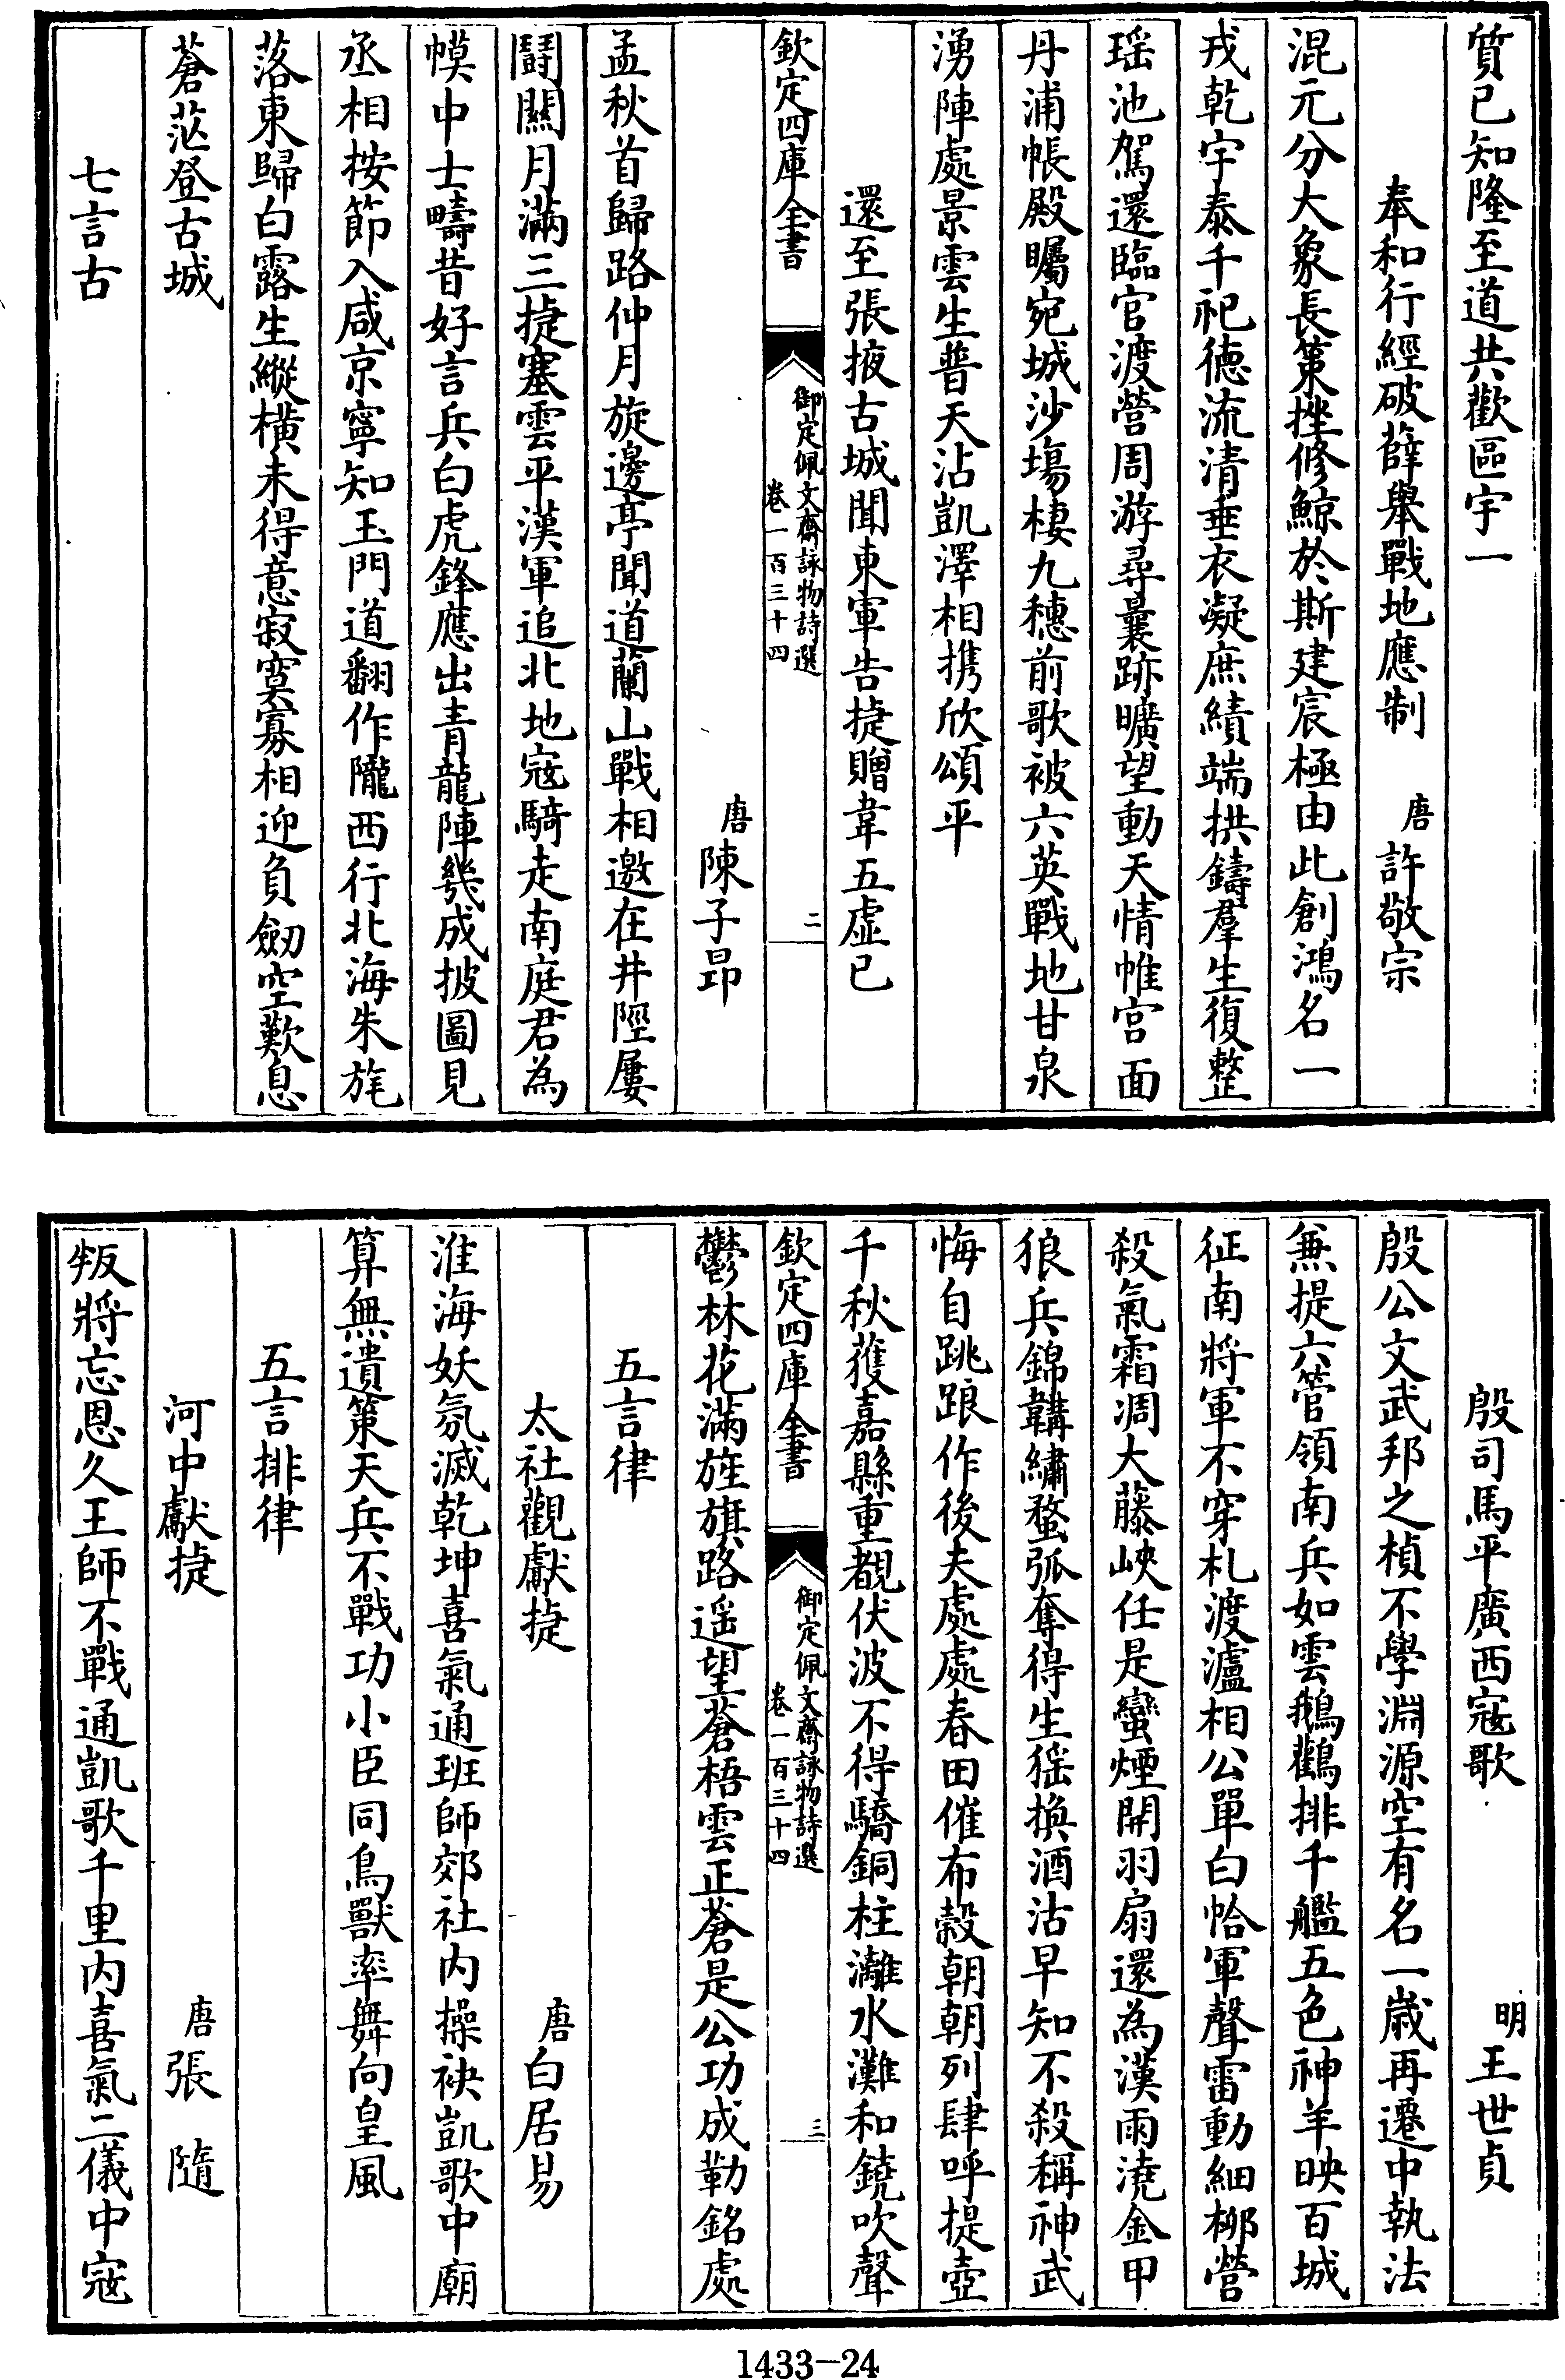 質已知隆至道共歡區宇一
奉和行經破薛舉戰地應制 唐 許敬宗
混元分大象長策挫修鯨於斯建宸極由此創鴻名一
戎乾宇泰千祀德流清垂衣凝庶績端拱鑄羣生復整
瑶池駕還臨官渡營周游尋曩跡曠望動天情帷宫面
丹浦帳殿矚宛城沙塲棲九穗前歌被六英戰地甘泉
湧陣處景雲生普天沾凱澤相携欣頌平
還至張掖古城聞東軍告捷贈韋五虚已
欽定四庫全書
御定佩文齋詠物詩選
卷一百三十四
二
唐 陳子昻
孟秋首歸路仲月旋邊亭聞道蘭山戰相邀在井陘屢
鬪關月滿三捷塞雲平漢軍追北地寇騎走南庭君為
幙中士疇昔好言兵白虎鋒應出青龍陣幾成披圖見
丞相按節入咸京寧知玉門道翻作隴西行北海朱旄
落東歸白露生縱横未得意寂寞寡相迎負劒空歎息
蒼茫登古城
七言古
殷司馬平廣西寇歌 明 王世貞
殷公文武邦之楨不學淵源空有名一歲再遷中執法
兼提六管領南兵如雲鵝鸛排千艦五色神羊映百城
征南將軍不穿札渡瀘相公單白帢軍聲雷動細栁營
殺氣霜凋大藤峽任是蠻煙開羽扇還為漢雨澆金甲
狼兵錦韝繡蝥弧奪得生猺換酒沽早知不殺稱神武
悔自跳踉作後夫處處春田催布穀朝朝列肆呼提壺
千秋蒦嘉縣重覩伏波不得驕銅柱灕水灘和鐃吹聲
欽定四庫全書
御定佩文齋詠物詩選
卷一百三十四
三
鬱林花滿旌旗路遥望蒼梧雲正蒼是公功成勒銘處
五言律
太社觀獻捷 唐 白居易
淮海妖氛滅乾坤喜氣通班師郊社内操袂凱歌中廟
算無遺策天兵不戰功小臣同鳥獸率舞向皇風
五言排律
河中獻捷 唐 張隨
叛將忘恩久王師不戰通凱歌千里内喜氣二儀中寇
1433-24